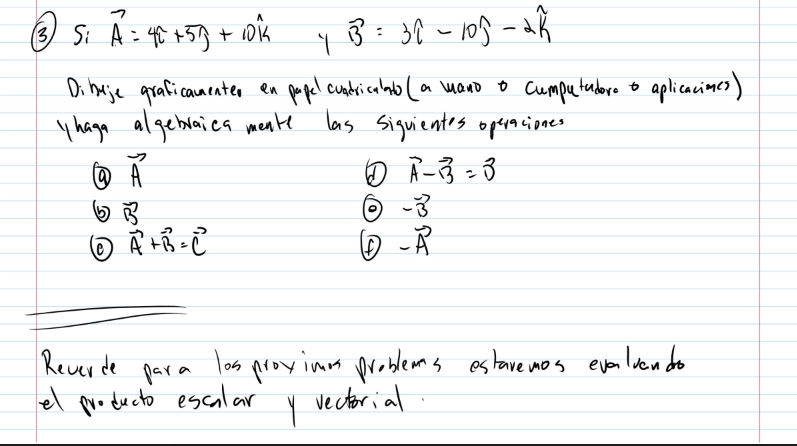 ③ Si A⃗ = 4î + 5ĵ + 10k̂ y B⃗ = 3î - 10ĵ - 2k̂
Dibuje graficamentes en papel cuadriculado (a mano o cumputadora o aplicaciones)
y haga algebraica mente las siguientes operaciones
ⓐ A⃗
ⓑ B⃗
ⓒ A⃗ + B⃗ = C⃗
ⓓ A⃗ - B⃗ = D⃗
ⓔ -B⃗
ⓕ -A⃗
Recuerde para los proximos problems estaremos evaluando
el producto escalar y vectorial.